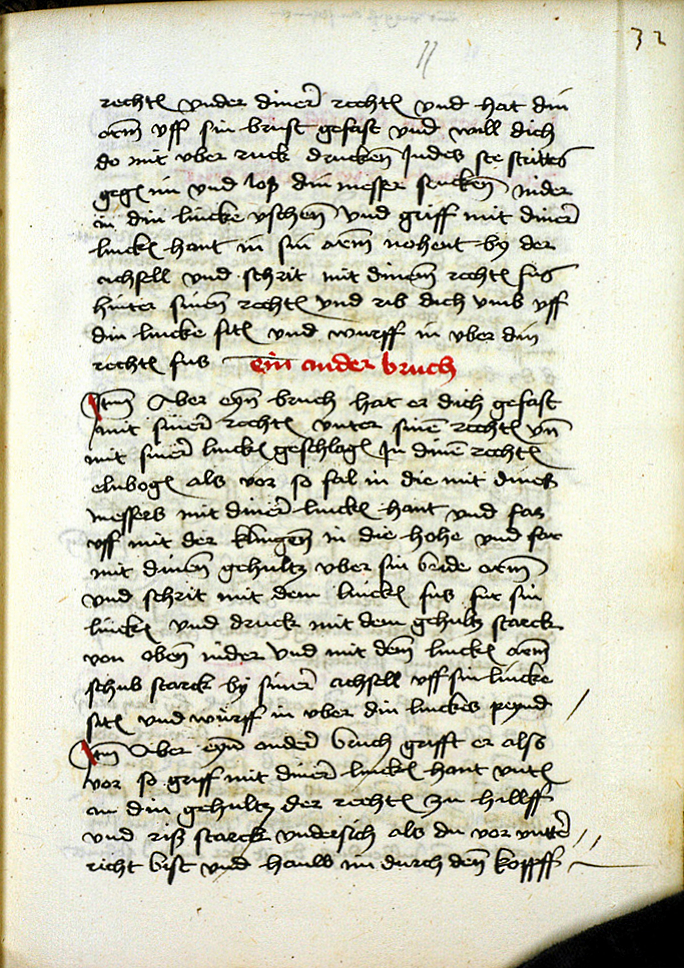 32
rechtñ vnder dinerr rechtñ vnd hat din
arm vff sin brust gefast vnd will dich
do mit vber ruck druckenn Jndes see strittes
gegñ im vnd loß din messer sencken nider
in din lincke vschenn vnd griff mit dinerr
linckñ hant in sin arm nohent by der
achsell vnd schrit mit dinem rechtñ fus
hinter sinen rechtñ vnd rib dich vmb vff
din lincke sitñ vnd wurff in vber din
rechtñ fus ein ander bruch
Jtm Aber eyn bruch hat er dich gefast
mit sinerr rechtñ vnter sinē rechtñ vñ
mit sinerr linckñ geschlagñ Jn dinē rechtñ
elnbogñ als vor so fal in die mit dines
messers mit dinerr linckñ hant vnd fas
vff mit der klingenn in die hohe vnd far
mit dinem gehultz vber sin beide arm
vnd schrit mit dem linckñ fus fur sin
linckñ vnd druck mit dem gehultz starck
von obenn nider vnd mit dem linckñ arm
schub starck by sinerr achsell vff sin lincke
sitñ vnd würff in vber din linckes peynd
Jtm Aber eyn anderr bruch grifft er also
vor so griff mit dinerr linckñ hant vntñ
an din gehultz der rechtñ zu hillff
vnd riß starck vndersich als du vor vntter
richt bist vnd hauw im durch den kopff